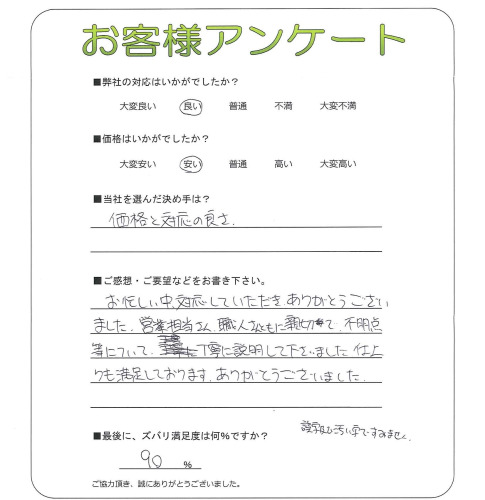 お客様アンケート
■弊社の対応はいかがでしたか？
大変良い 良い 普通 不満 大変不満
■価格はいかがでしたか？
大変安い 安い 普通 高い 大変高い
■当社を選んだ決め手は？
価格と対応の良さ.
■ご感想・ご要望などをお書き下さい。
お忙しい中、対応していただき、ありがとうござい
ました. 営業担当さん、職人さんともに親切で、不明点
等について、丁寧に説明して下さいました 仕上
りも満足しております. ありがとうございました.
■最後に、ズバリ満足度は何％ですか？
誤字及び汚い字ですみません.
90 ％
ご協力頂き、誠にありがとうございました。